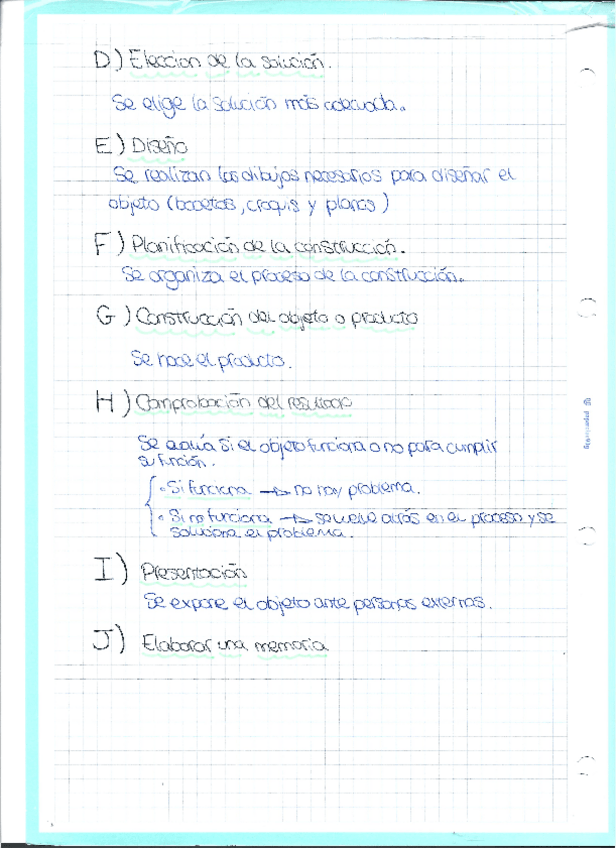 D) Eleccion de la solución.
Se elige la solución más adecuada.
E) Diseño
Se realizan los dibujos necesarios para diseñar el
objeto (bocetos, croquis y planos)
F) Planificación de la construcción.
Se organiza el proceso de la construcción.
G) Construcción del objeto o producto
Se hace el producto.
H) Comprobación del resultado
Se evalúa si el objeto funciona o no para cumplir
su función.
• Si funciona → no hay problema.
• Si no funciona → se vuelve atrás en el proceso y se
soluciona el problema.
I) Presentación
Se expone el objeto ante personas externas.
J) Elaborar una memoria